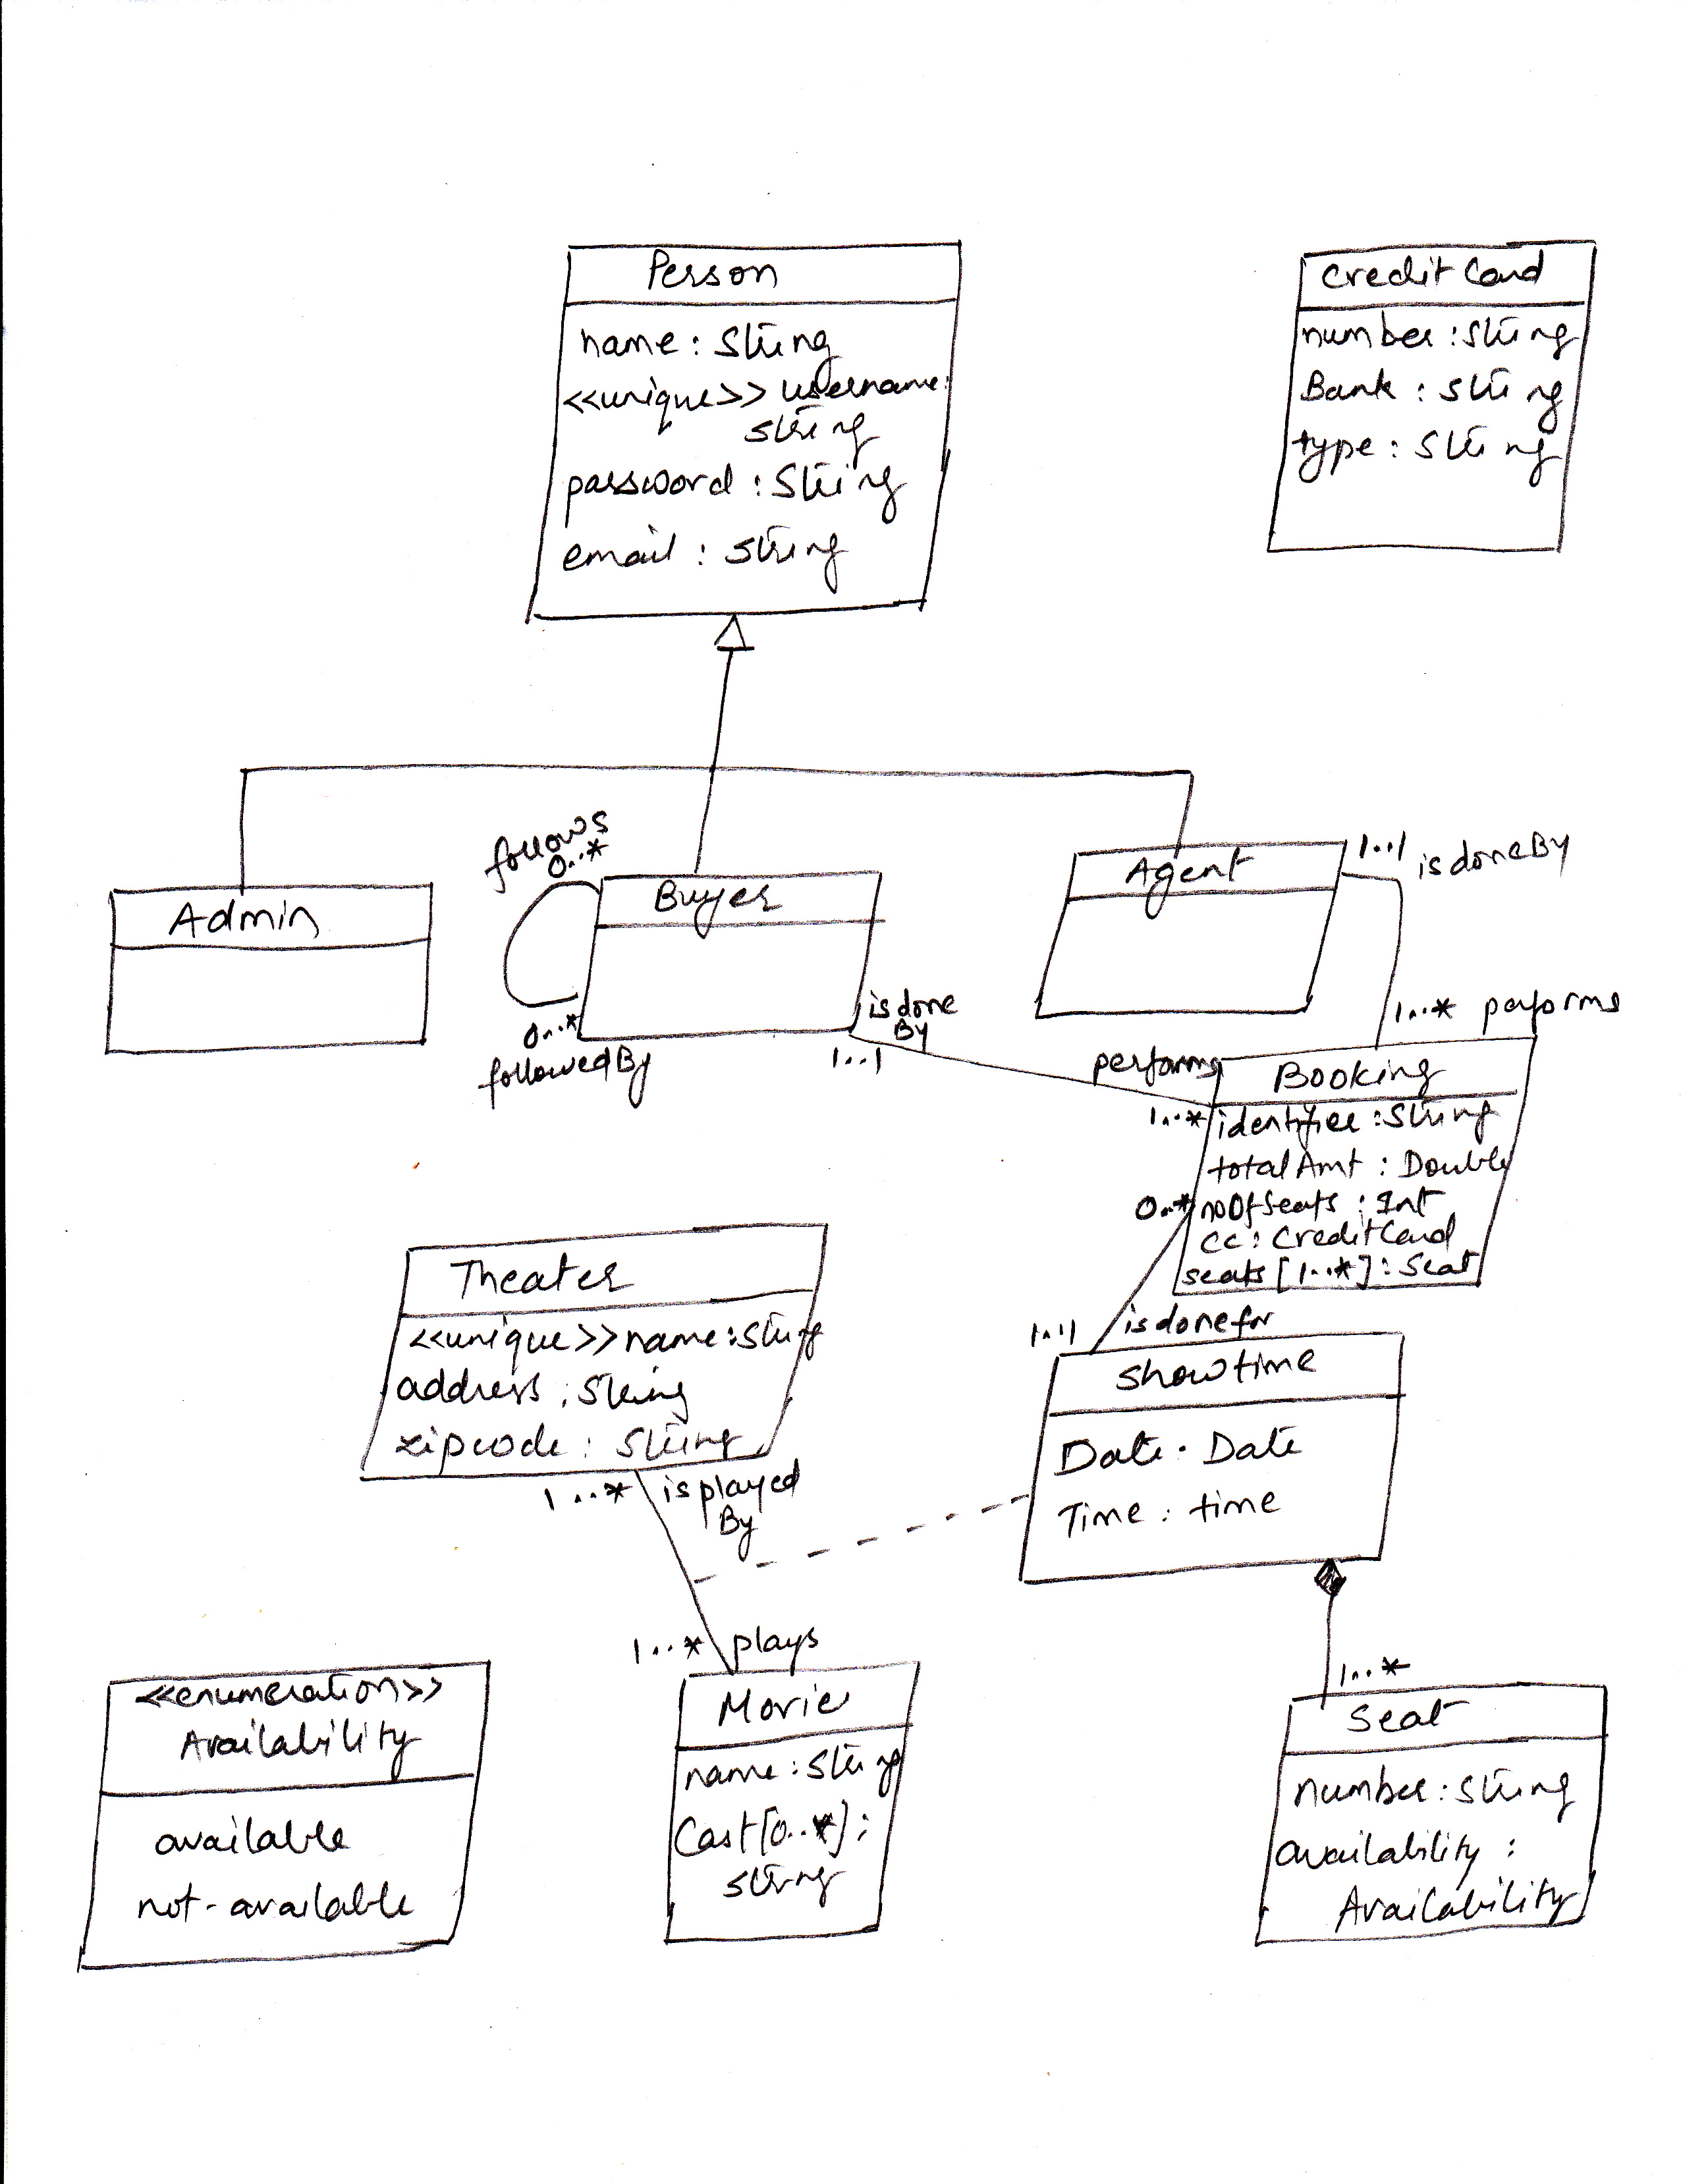 Person
name : String
<<unique>> username:
string
password : String
email : string
Credit Card
number : string
Bank : string
type : String
Admin
follows
0..*
Buyer
0..*
followedBy
Agent
1..1 is doneBy
is done
By
1..1
1..* performs
performs
1..*
Booking
identifier : String
totalAmt : Double
0..*
noOfSeats : Int
cc : CreditCard
seats [1..*] : Seat
Theater
<<unique>> name : String
address : String
zipcode : String
1..* is played
By
1..1 is done for
showtime
Date . Date
Time : time
1..* plays
1..*
<<enumeration>>
Availability
available
not-available
Movie
name : String
Cast [0..*] :
string
Seat
number : string
availability :
Availability